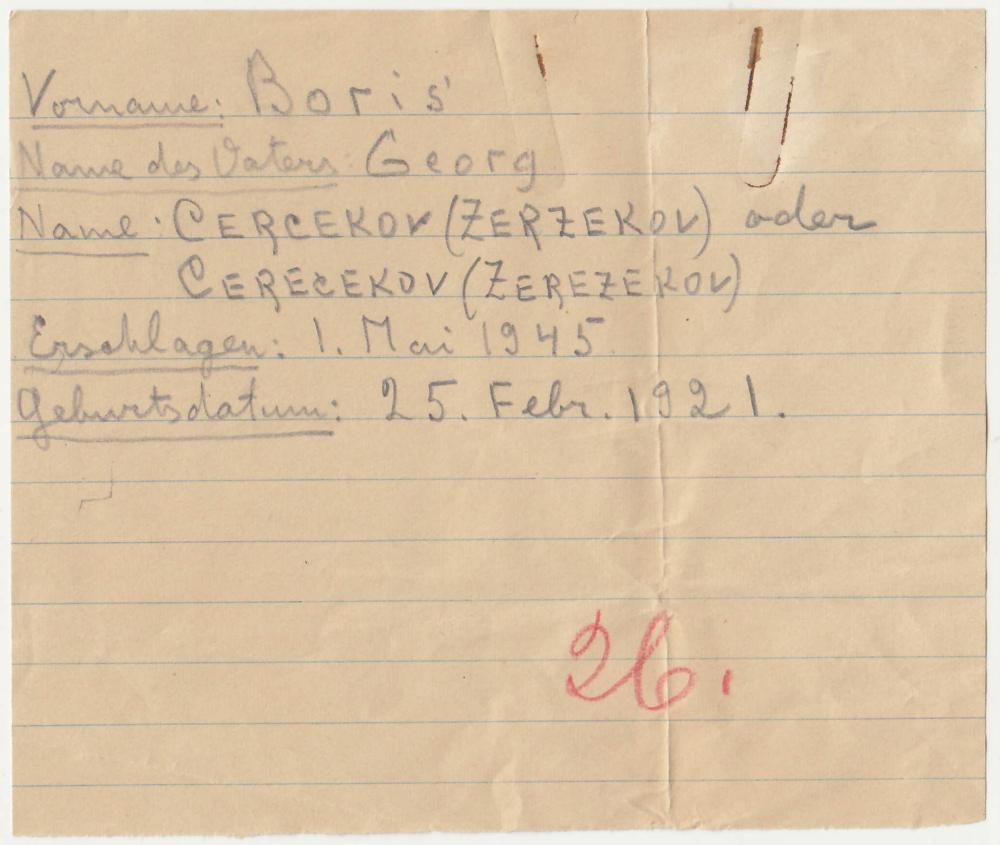 Vorname: Boris
Name des Vaters: Georg
Name: CERCEKOV (ZERZEKOV) oder
CERECEKOV (ZEREZEKOV)
Erschlagen: 1. Mai 1945
Geburtsdatum: 25. Febr. 1921.
26.